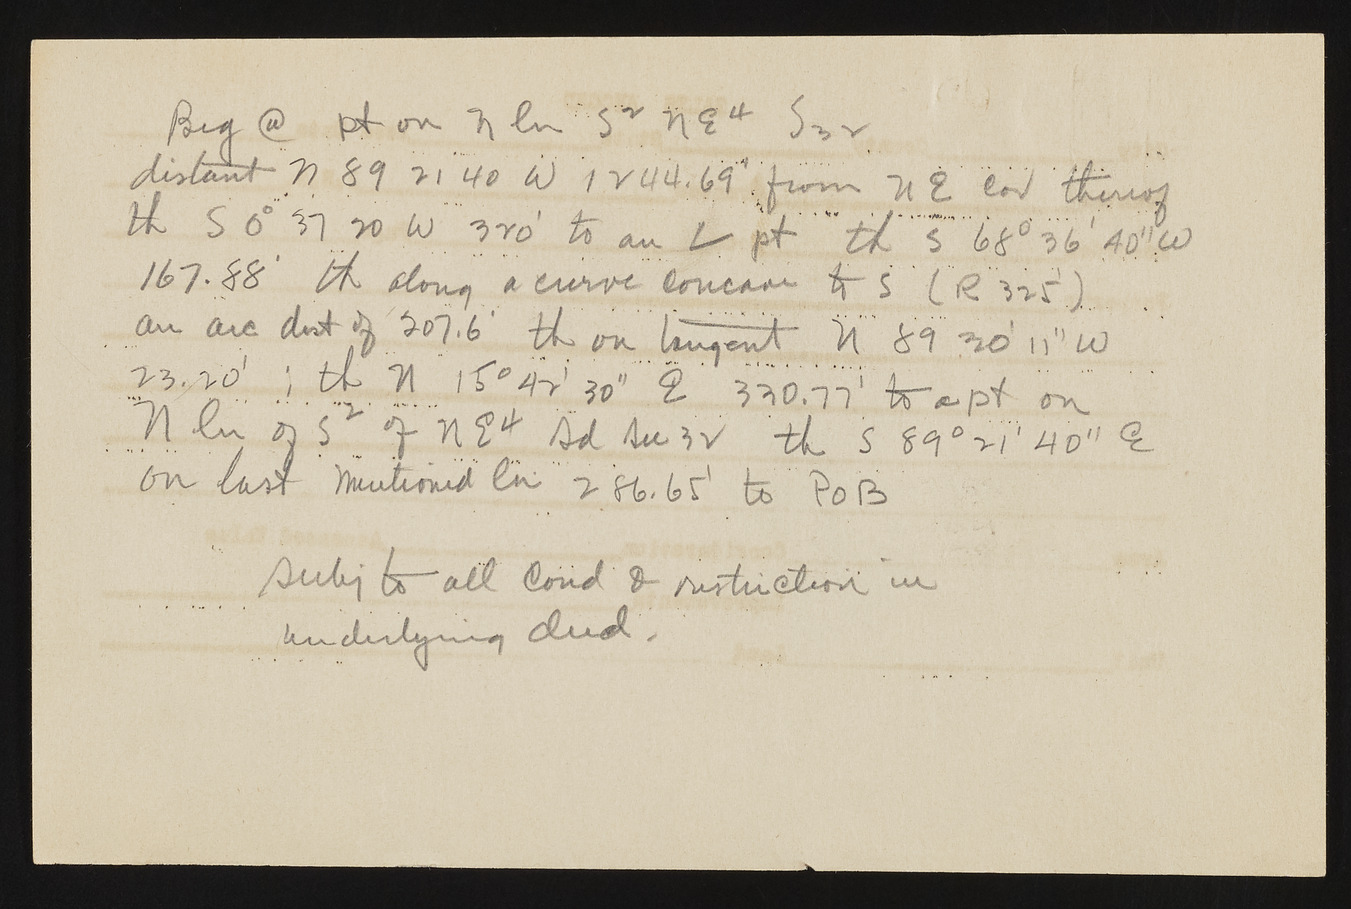 Beg @ pt on N ln S2 NE4 S32
distant N 89 21 40 W 1244.69' from NE Cor thereof
th S 0° 37 20 W 320' to an L pt th S 68° 36' 40" W
167.88' th along a curve concave to S (R 325')
an arc dist of 207.6' th on tangent N 89 20' 11" W
23.20' ; th N 15° 42' 30" E 330.77' to a pt on
N ln of S2 of NE4 sd sec 32 th S 89° 21' 40" E
on last mentioned ln 286.65' to POB
Subj to all Cond & restriction in
underlying deed.